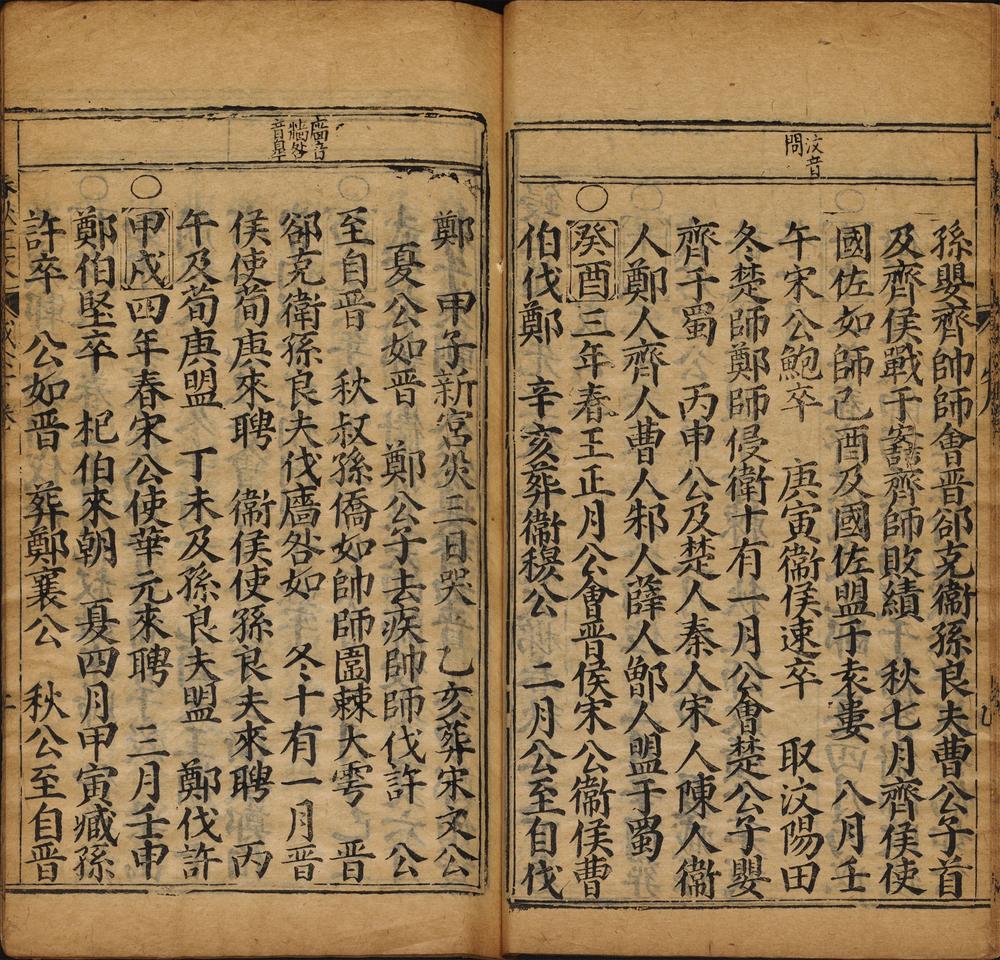 汶音
問
孫嬰齊帥師會晉郤克衞孫良夫曹公子首
及齊侯戰于鞌齊師敗績　秋七月齊侯使
國佐如師己酉及國佐盟于袁婁　八月壬
午宋公鮑卒　庚寅衞侯速卒　取汶陽田
冬楚師鄭師侵衛十有一月公會楚公子嬰
齊于蜀　丙申公及楚人秦人宋人陳人衞
人鄭人齊人曹人邾人薛人鄫人盟于蜀
○癸酉三年春王正月公會晉侯宋公衞侯曹
伯伐鄭　辛亥葬衞穆公　二月公至自伐
廧音
牆咎
音皐
鄭　甲子新宮災三日哭　乙亥葬宋文公
夏公如晉　鄭公子去疾帥師伐許　公
至自晉　秋叔孫僑如帥師圍棘大雩　晉
郤克衛孫良夫伐廧咎如　冬十有一月晉
侯使荀庚來聘　衞侯使孫良夫來聘　丙
午及荀庚盟　丁未及孫良夫盟　鄭伐許
○甲戌四年春宋公使華元來聘　三月壬申
鄭伯堅卒　杞伯來朝　夏四月甲寅臧孫
許卒　公如晉　葬鄭襄公　秋公至自晉